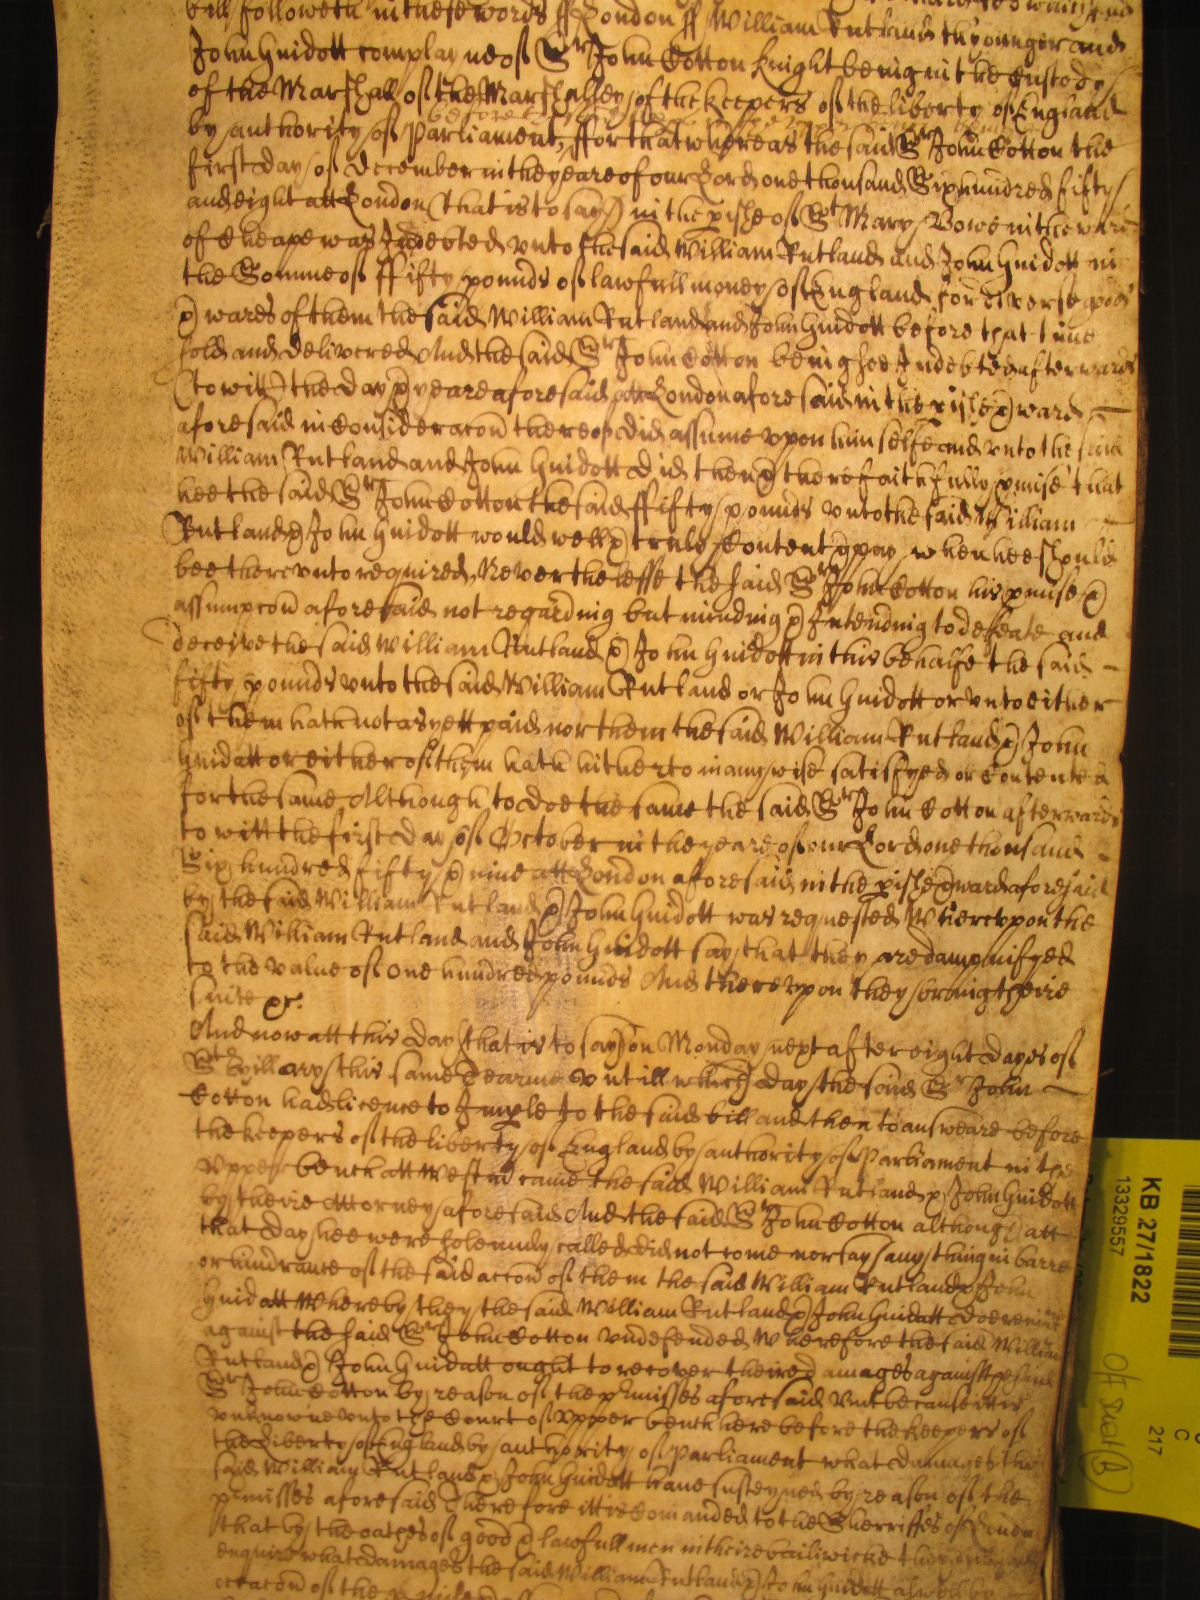 bill followeth in these words ss London ss William Rutland the younger and
John Guidott complayne of Sr John Cotton Knight being in the Custody
of the Marshall of the Marshalsey of the Keepers of the liberty of England
by authority of Parliament, before
ffor that whereas the said Sr John Cotton the
first day of December in the yeare of our Lord one thousand Six hundred fifty
and eight att London (that is to say) in the pishe of St Mary Bowe in the ward
of Cheape was Indebted unto the said William Rutland and John Guidott in
the Somme of ffifty pounds of lawfull money of England for diverse goods
& wares of them the said William Rutland and John Guidott before that time
sold and delivered And the said Sr John Cotton being soe Indebted afterwards
(to witt) the day & yeare aforesaid att London aforesaid in the pishe & ward
aforesaid in Consideracon thereof did assume vpon himselfe and vnto the said
William Rutland and John Guidott did then & there faithfully pmise that
hee the said Sr John Cotton the said ffifty pounds vnto the said William
Rutland & John Guidott would well & truly Content & pay when hee should
bee therevnto required, Neverthelesse the said Sr John Cotton his pmise &
assumpcon aforesaid not regarding but minding & Intending to defeate and
deceive the said William Rutland & John Guidott in this behalfe the said
fifty pounds vnto the said William Rutland or John Guidott or vnto either
of them hath not as yett paid nor them the said William Rutland & John
Guidatt or either of them hath hitherto in any wise satisfyed or Contented
for the same Although to doe the same the said Sr John Cotton afterwards
to witt the first day of October in the yeare of our Lord one thousand
Six hundred fifty & nine att London aforesaid in the pishe & ward aforesaid
by the said William Rutland & John Guidott was requested Wherevpon the
said William Rutland and John Guidott say that they are dampnifyed
to the value of One hundred pounds And therevpon they bring theire
suite &c.
And now att this day (that is to say) on Monday next after eight dayes of
St Hillary this same Tearme vntill which day the said Sr John
Cotton had licence to Imple to the said bill and then to answeare before
the Keepers of the liberty of England by authority of Parliament in the
Vpper bench att Westm came the said William Rutland & John Guidott
by theire Attorney aforesaid And the said Sr John Cotton although att
that day hee were solemnly called did not come nor say any thing in barre
or hindrance of the said accon of them the said William Rutland & John
Guidatt Whereby they the said William Rutland & John Guidatt doe remaine
against the said Sr John Cotton vndefended Wherefore the said William
Rutland & John Guidatt ought to recover theire damages against the said
Sr John Cotton by reason of the pmisses aforesaid But because it is
vnknowne vnto the Court of Vpper bench here before the Keepers of
the liberty of England by authority of Parliament what damages the
said William Rutland & John Guidott have susteyned by reason of the
pmisses aforesaid Therefore itt is Comanded to the Sherriffes of London
that by the oathes of good & lawfull men in theire bailiwicke they
enquire what damages the said William Rutland & John Guidott as well by
occacon of the
KB 27/1822
13329557
C
217